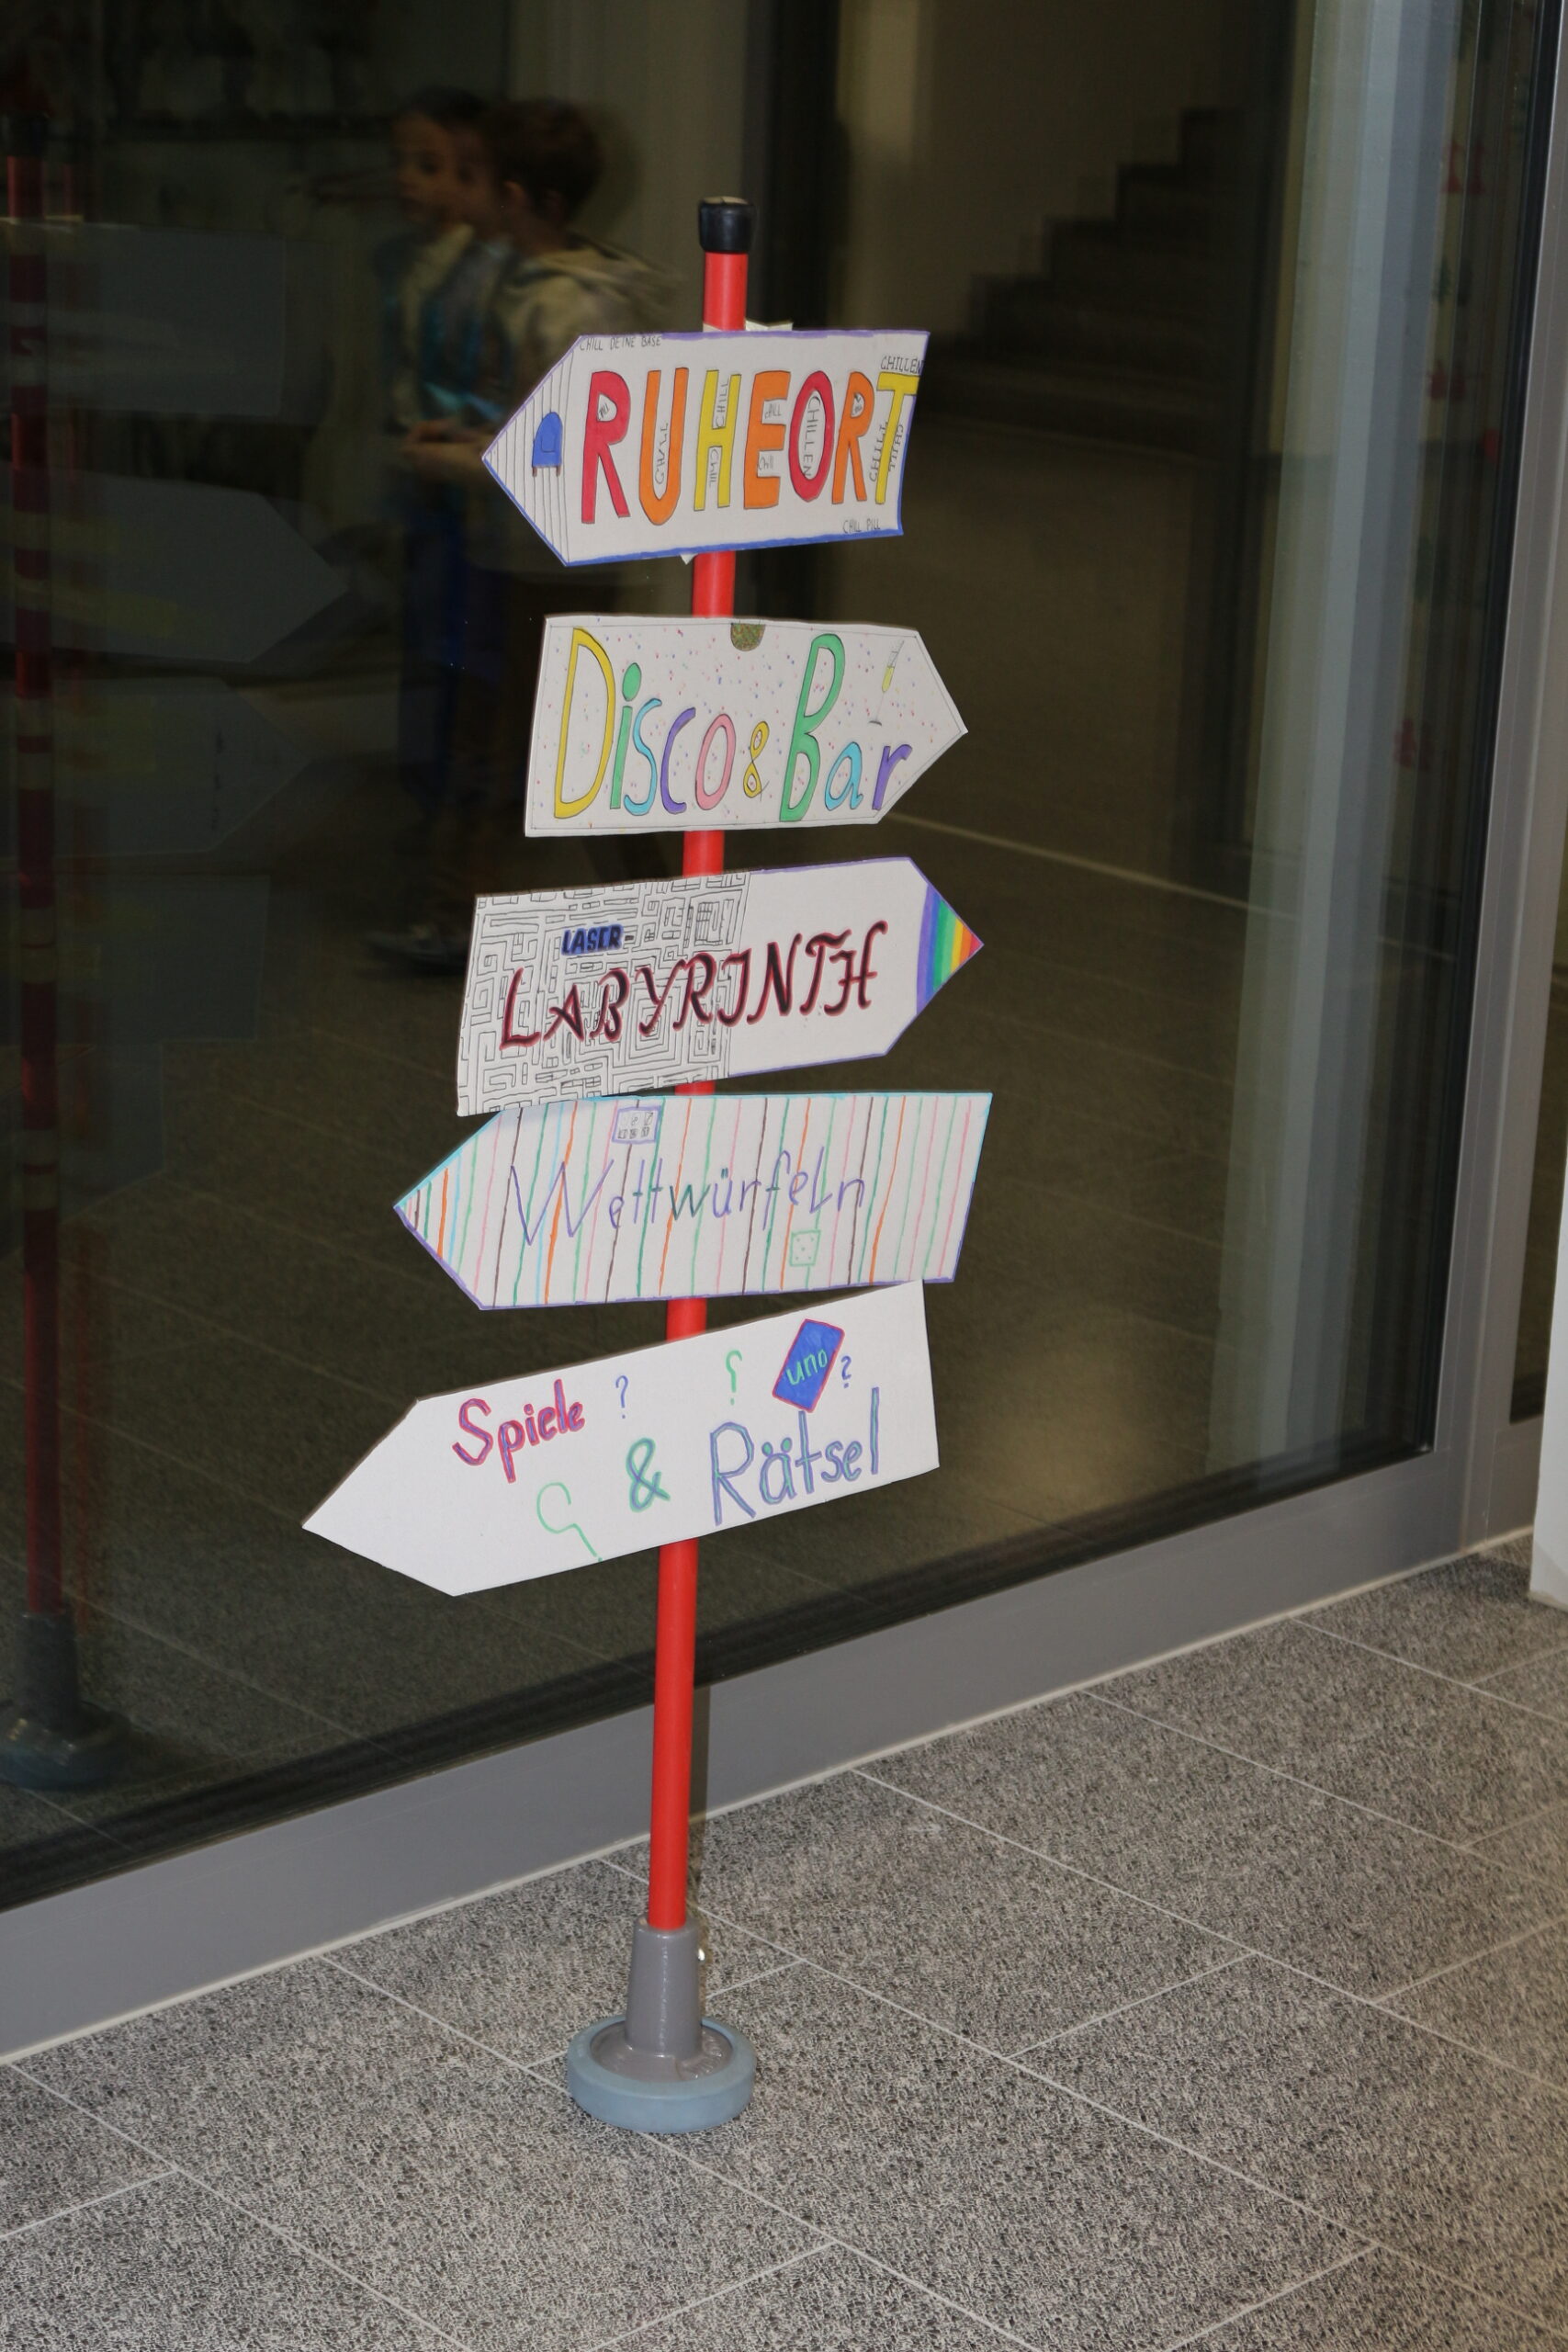 CHILL DEINE BASE
CHILLEN
RUHEORT
CHILL
CHILL
CHILL
CHILL
Chill
CHILLEN
CHILL
CHILL PILL
Disco & Bar
LASER-
LABYRINTH
Wettwürfeln
Spiele ? ? uno ?
? & Rätsel